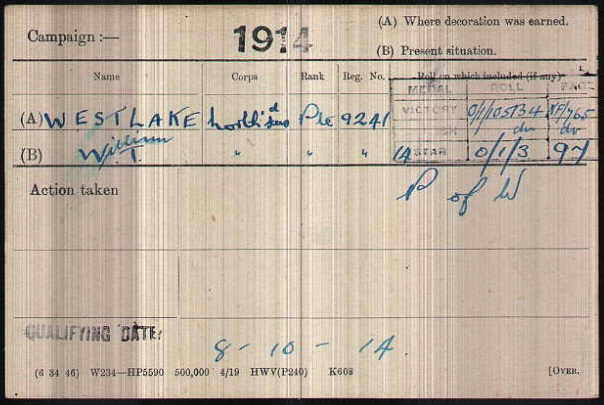 (A) Where decoration was earned.
Campaign :— 1914
(B) Present situation.
Name Corps Rank Reg. No. Roll on which included (if any)
MEDAL ROLL PAGE
(A) WESTLAKE Pte 9241 VICTORY
William do do
(B) W. T. " " " 14 STAR 0/1/3 97
Action taken P of W
QUALIFYING DATE: 8 - 10 - 14.
(6 34 46) W234—HP5590 500,000 4/19 HWV(P240) K608 [OVER.